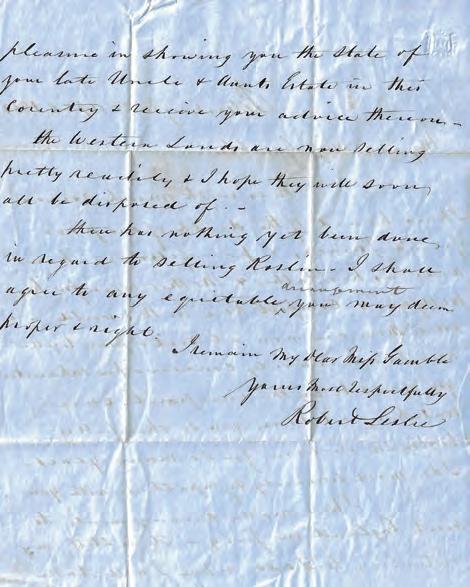 pleasure in showing you the state of
your late Uncle & Aunts Estate in this
Country & receive your advice thereon -
the Western Lands are now selling
pretty readily & I hope they will soon
all be disposed of -
there has nothing yet been done
in regard to selling Roslin - I shall
arrangement
agree to any equitable, you may deem
proper & right
I remain My Dear Miss Gamble
Yours Most Respectfully
Robert Leslie